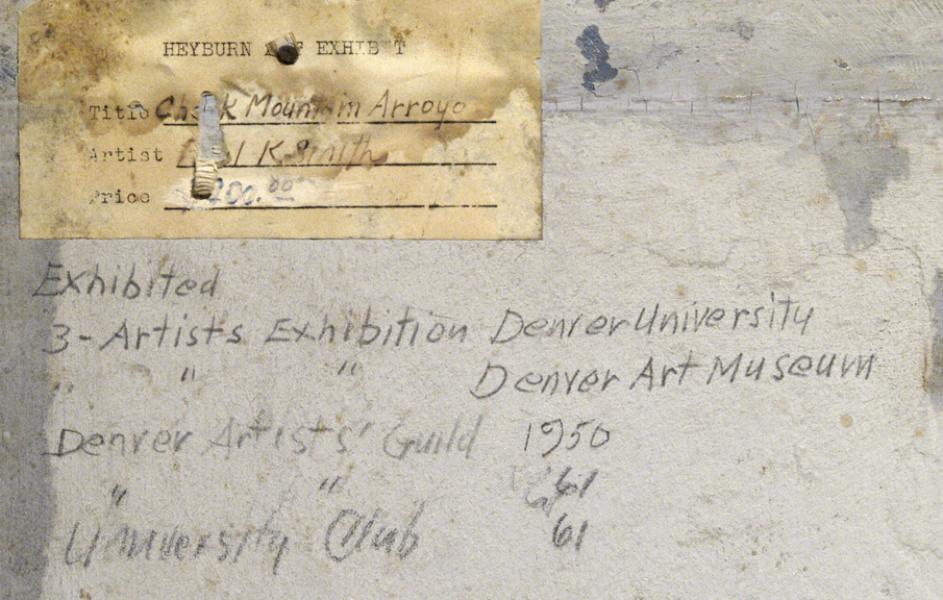 HEYBURN EXHIB T
Title Mountain Arroyo
Artist K. Smith
Price 200.00
Exhibited
3-Artists Exhibition Denver University
" " " Denver Art Museum
Denver Artists' Guild 1950
" " 61
University Club 61